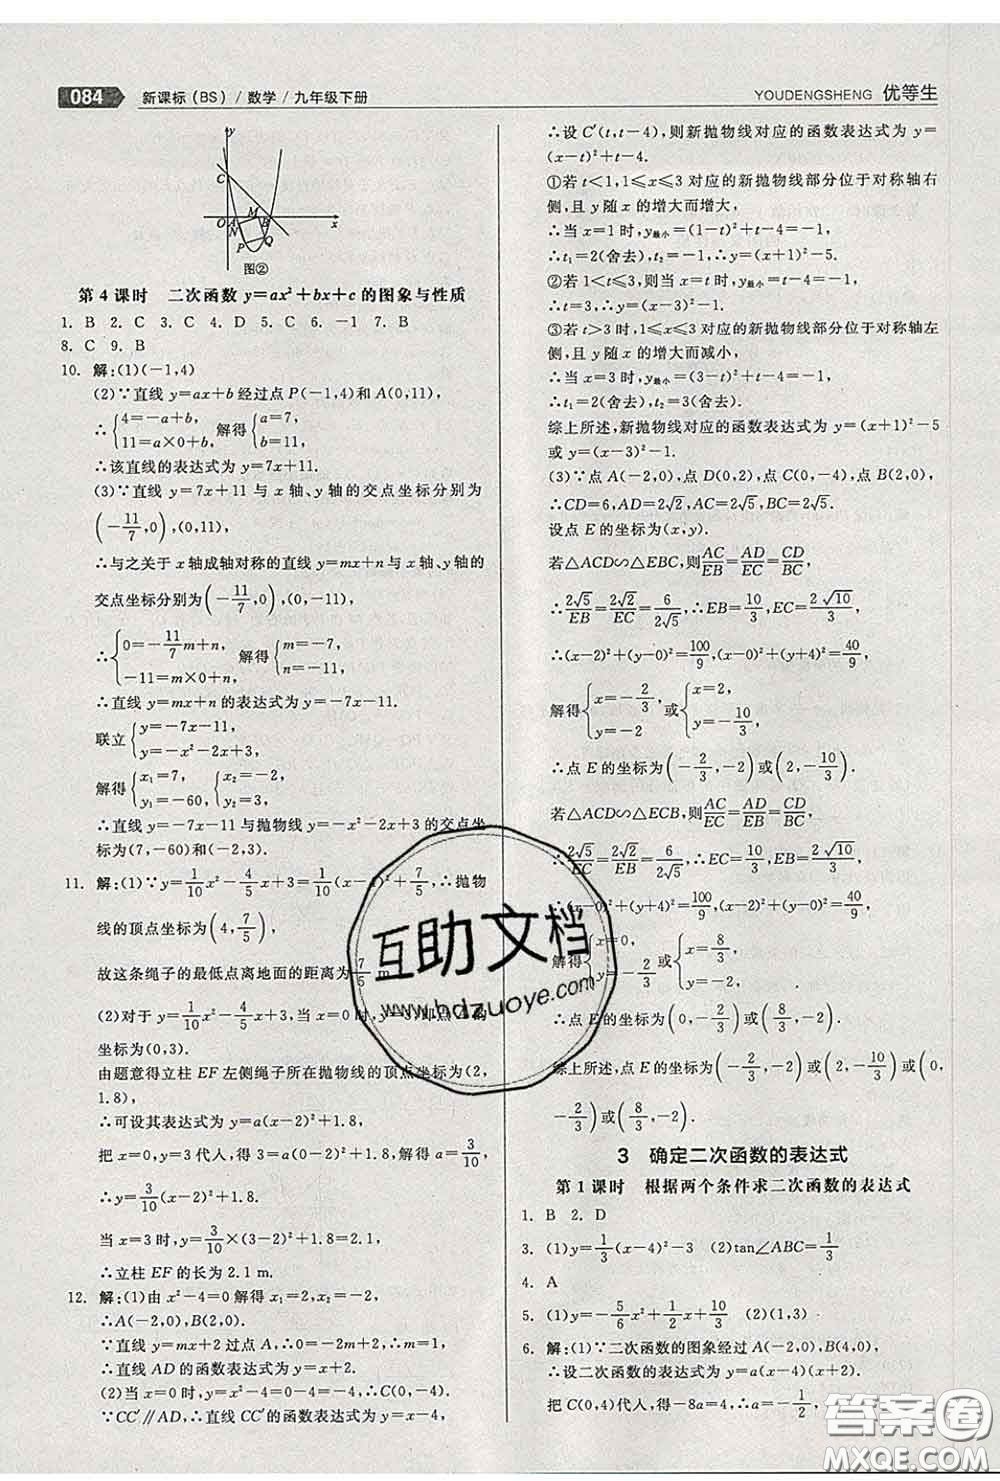 084 新课标(BS) / 数学 / 九年级下册
YOUDENGSHENG 优等生
y
C
O A M B x
N
P Q
图②
第 4 课时 二次函数 y=ax²+bx+c 的图象与性质
1. B 2. C 3. C 4. D 5. C 6. -1 7. B
8. C 9. B
10. 解:(1)(-1,4)
(2)∵直线 y=ax+b 经过点 P(-1,4)和 A(0,11),
∴{4=-a+b, 11=a×0+b, 解得{a=7, b=11.
∴该直线的表达式为 y=7x+11.
(3)∵直线 y=7x+11 与 x 轴、y 轴的交点坐标分别为
(-11/7,0),(0,11),
∴与之关于 x 轴成轴对称的直线 y=mx+n 与 x 轴、y 轴的
交点坐标分别为(-11/7,0),(0,-11),
∴{0=-11/7m+n, -11=m×0+n, 解得{m=-7, n=-11.
∴直线 y=mx+n 的表达式为 y=-7x-11.
联立{y=-7x-11, y=-x²-2x+3,
解得{x₁=7, y₁=-60, {x₂=-2, y₂=3.
∴直线 y=-7x-11 与抛物线 y=-x²-2x+3 的交点坐
标为(7,-60)和(-2,3).
11. 解:(1)∵y=1/10x²-4/5x+3=1/10(x-4)²+7/5,∴抛物
线的顶点坐标为(4,7/5),
故这条绳子的最低点离地面的距离为7/5 m.
(2)对于 y=1/10x²-4/5x+3,当 x=0 时,y=3,即点 A 的
坐标为(0,3).
由题意得立柱 EF 左侧绳子所在抛物线的顶点坐标为(2,
1.8),
∴可设其表达式为 y=a(x-2)²+1.8,
把 x=0,y=3 代人,得 3=a(0-2)²+1.8,解得 a=3/10,
∴y=3/10(x-2)²+1.8,
当 x=3 时,y=3/10×(3-2)²+1.8=2.1,
∴立柱 EF 的长为 2.1 m.
12. 解:(1)由 x²-4=0 解得 x₁=2,x₂=-2,
∴A(-2,0),B(2,0).
∵直线 y=mx+2 过点 A,∴-2m+2=0,∴m=1,
∴直线 AD 的函数表达式为 y=x+2.
(2)当 x=0 时,y=x²-4=-4,∴C(0,-4).
∵CC′∥AD,∴直线 CC′的函数表达式为 y=x-4,
∴设 C′(t,t-4),则新抛物线对应的函数表达式为 y=
(x-t)²+t-4.
①若 t<1,1≤x≤3 对应的新抛物线部分位于对称轴右
侧,且 y 随 x 的增大而增大,
∴当 x=1时,y最小=(1-t)²+t-4=-1,
∴t₁=2(舍去),t₂=-1,∴y=(x+1)²-5.
②若1≤t≤3,则当 x=t 时,y最小=t-4=-1,
∴t=3,∴y=(x-3)²-1.
③若 t>3 时,1≤x≤3 对应的新抛物线部分位于对称轴左
侧,且 y 随 x 的增大而减小,
∴当 x=3 时,y最小=(3-t)²+t-4=-1,
∴t₁=2(舍去),t₂=3(舍去).
综上所述,新抛物线对应的函数表达式为 y=(x+1)²-5
或 y=(x-3)²-1.
(3)∵点 A(-2,0),点 D(0,2),点 C(0,-4),点 B(2,0),
∴CD=6,AD=2√2,AC=2√5,BC=2√5.
设点 E 的坐标为(x,y).
若△ACD∽△EBC,则AC/EB=AD/EC=CD/BC,
∴2√5/EB=2√2/EC=6/2√5,∴EB=10/3,EC=2√10/3,
∴(x-2)²+(y-0)²=100/9,(x-0)²+(y+4)²=40/9,
解得{x=-2/3, y=-2 或{x=-2, y=-10/3,
∴点 E 的坐标为(-2/3,-2)或(-2,-10/3).
若△ACD∽△ECB,则AC/EC=AD/EB=CD/BC,
∴2√5/EC=2√2/EB=6/2√5,∴EC=10/3,EB=2√10/3,
∴(x-0)²+(y+4)²=100/9,(x-2)²+(y-0)²=40/9,
解得{x=0, y=-2/3 或{x=8/3, y=-2,
∴点 E 的坐标为(0,-2/3)或(8/3,-2).
综上所述,点 E 的坐标为(-2/3,-2)或(-2,-10/3)或(0,
-2/3)或(8/3,-2).
3 确定二次函数的表达式
第 1 课时 根据两个条件求二次函数的表达式
1. B 2. D
3. (1)y=1/3(x-4)²-3 (2)tan∠ABC=1/3
4. A
5. (1)y=-5/6x²+1/2x+10/3 (2)(1,3)
6. 解:(1)∵二次函数的图象经过 A(-2,0),B(4,0),
∴设二次函数的表达式为 y=a(x-4)(x+2).
把 C(0,4)代人,得-8a=4,∴a=-1/2,
互助文档
www.hdzuoye.com
答案圈
MXQE.COM